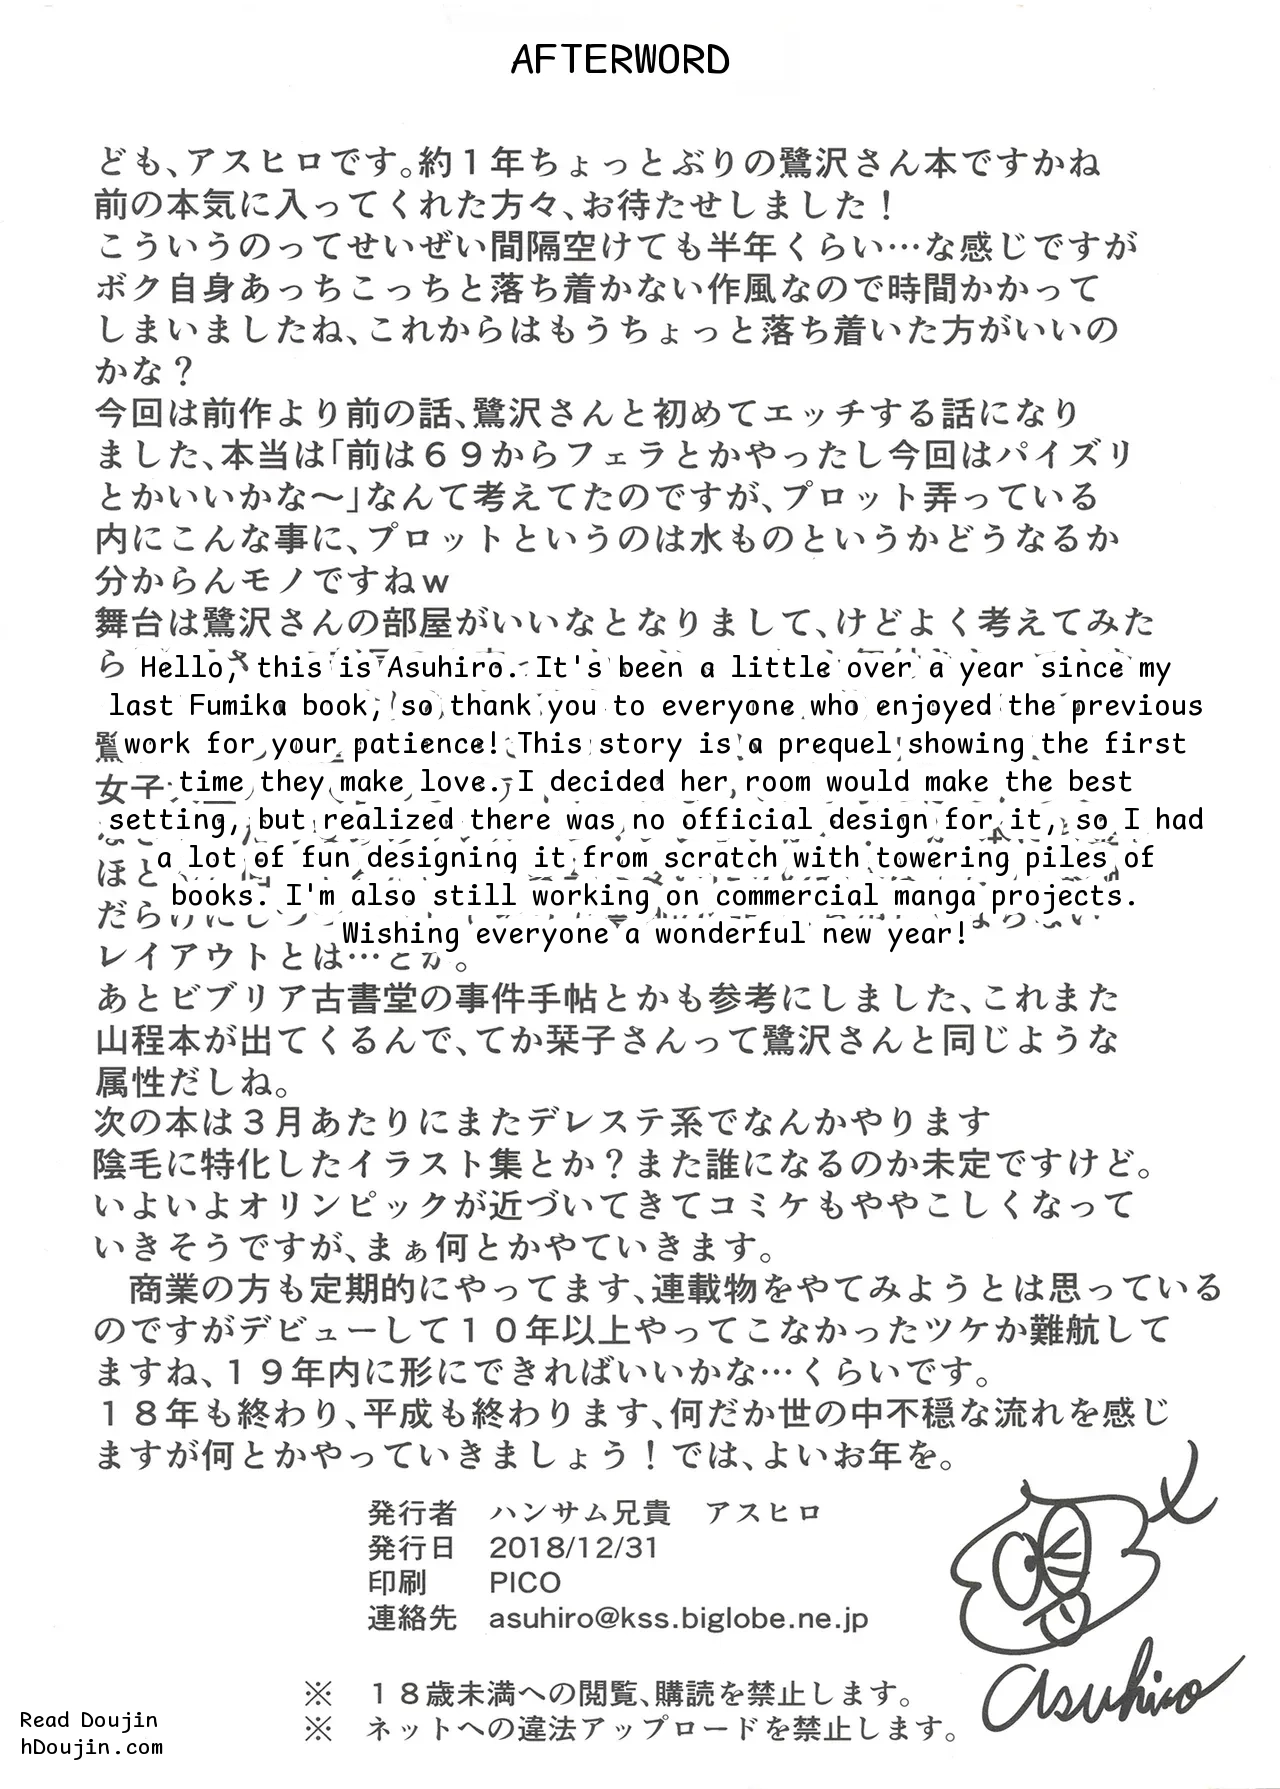 AFTERWORD
ども、アスヒロです。約１年ちょっとぶりの鷺沢さん本ですかね
前の本気に入ってくれた方々、お待たせしました！
こういうのってせいぜい間隔空けても半年くらい…な感じですが
ボク自身あっちこっちと落ち着かない作風なので時間かかって
しまいましたね、これからはもうちょっと落ち着いた方がいいの
かな？
今回は前作より前の話、鷺沢さんと初めてエッチする話になり
ました、本当は「前は６９からフェラとかやったし今回はパイズリ
とかいいかな～」なんて考えてたのですが、プロット弄っている
内にこんな事に、プロットというのは水ものというかどうなるか
分からんモノですねｗ
舞台は鷺沢さんの部屋がいいなとなりまして、けどよく考えてみた
ら
Hello, this is Asuhiro. It's been a little over a year since my
last Fumika book, so thank you to everyone who enjoyed the previous
work for your patience! This story is a prequel showing the first
女子
time they make love. I decided her room would make the best
setting, but realized there was no official design for it, so I had
ほと
a lot of fun designing it from scratch with towering piles of
books. I'm also still working on commercial manga projects.
だらけにしつ
Wishing everyone a wonderful new year!
レイアウトとは…とか。
あとビブリア古書堂の事件手帖とかも参考にしました、これまた
山程本が出てくるんで、てか栞子さんって鷺沢さんと同じような
属性だしね。
次の本は３月あたりにまたデレステ系でなんかやります
陰毛に特化したイラスト集とか？また誰になるのか未定ですけど。
いよいよオリンピックが近づいてきてコミケもややこしくなって
いきそうですが、まぁ何とかやていきます。
商業の方も定期的にやってます、連載物をやてみようとは思っている
のですがデビューして１０年以上やってこなかったツケか難航して
ますね、１９年内に形にできればいいかな…くらいです。
１８年も終わり、平成も終わります、何だか世の中不穏な流れを感じ
ますが何とかやっていきましょう！では、よいお年を。
発行者 ハンサム兄貴 アスヒロ
発行日 2018/12/31
印刷 PICO
連絡先 asuhiro@kss.biglobe.ne.jp
asuhiro
※ １８歳未満への閲覧、購読を禁止します。
※ ネットへの違法アップロードを禁止します。
Read Doujin
hDoujin.com